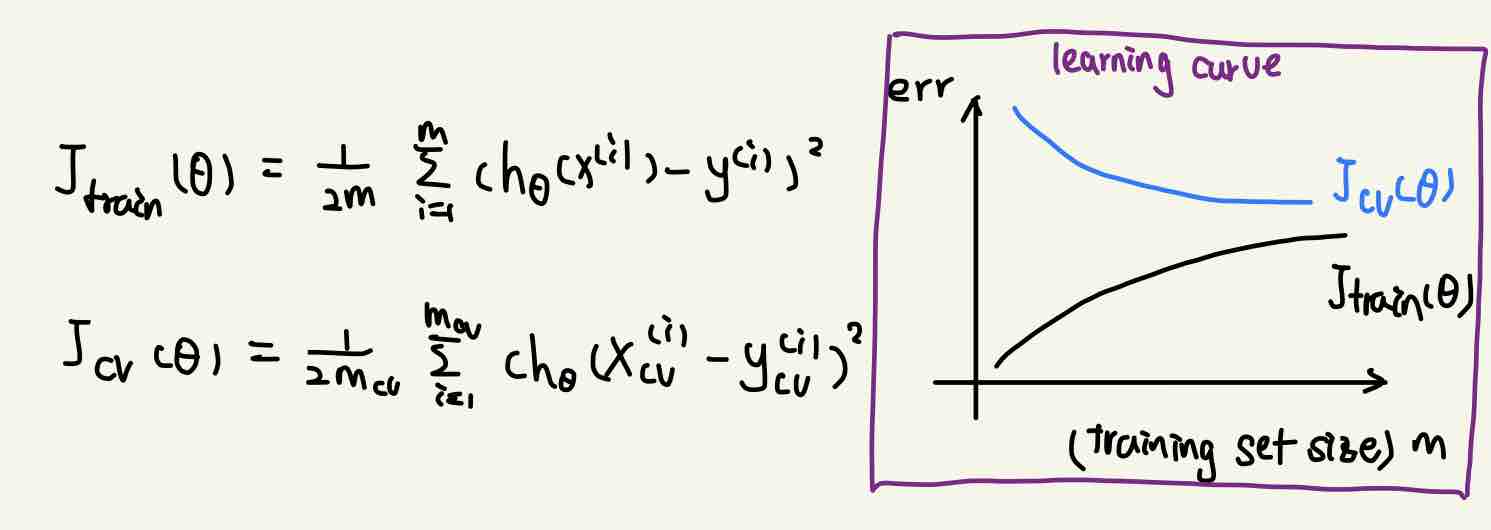 J_train(θ) = 1/2m Σ_{i=1}^{m} (h_θ(x^(i)) - y^(i))²
J_cv(θ) = 1/2m_cv Σ_{i=1}^{m_cv} (h_θ(x_cv^(i) - y_cv^(i))²
learning curve
err
J_cv(θ)
J_train(θ)
(training set size) m